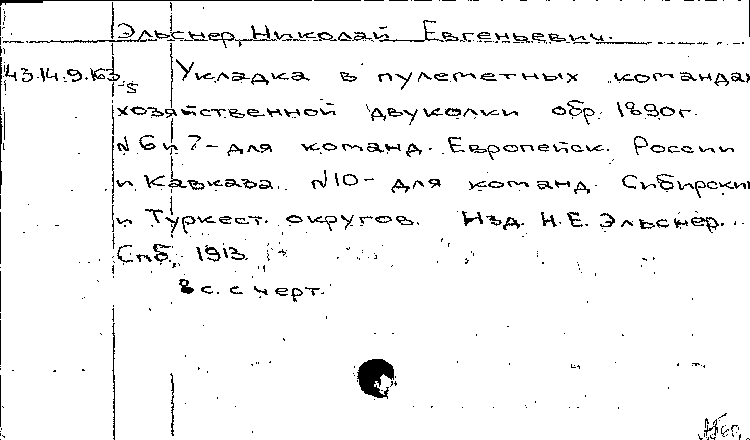 Эльснер, Николай Евгеньевич.
43.14.9.163
5 Укладка в пулеметных командах
хозяйственной двуколки обр. 1890г.
№6 и 7 - для команд. Европейск. России
и Кавказа. №10 - для команд. Сибирских
и Туркест. округов. Изд. Н.Е. Эльснер...
Спб, 1913
8 с. с черт.